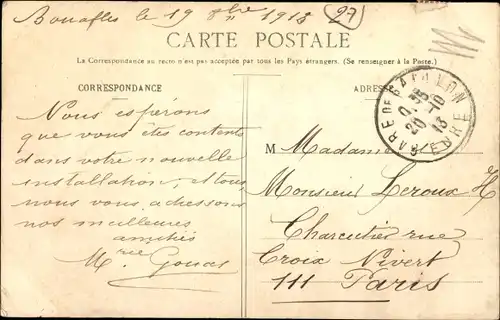 Bouafles le 19 8bre 1913
27
CARTE POSTALE
La Correspondance au recto n'est pas acceptée par tous les Pays étrangers. (Se renseigner à la Poste.)
CORRESPONDANCE
ADRESSE
GARE DE GAILLON
20 -10
13
EURE
Nous espérons
que vous êtes contents
dans votre nouvelle
installation, et tous
nous vous adressons
nos meilleures
amitiés
M
M Madame
Monsieur Leroux H
Charcutier rue
Croix Nivert
111 Paris